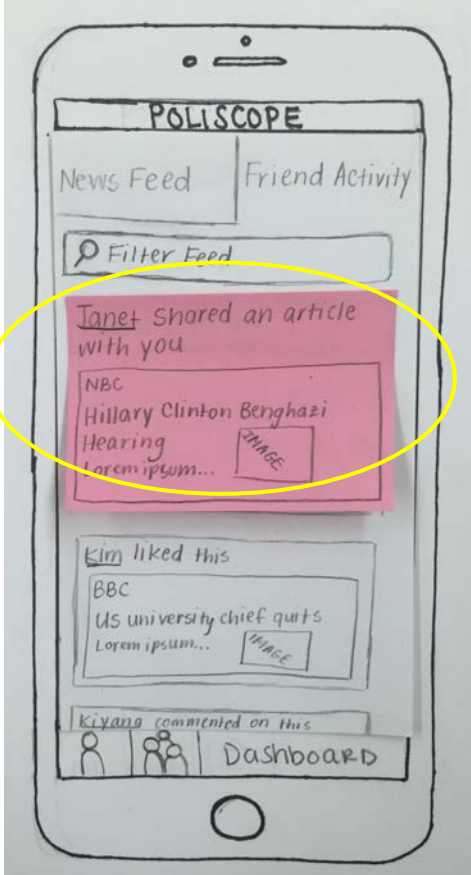 POLISCOPE
News Feed
Friend Activity
Filter Feed
Janet shared an article
with you
NBC
Hillary Clinton Benghazi
Hearing
IMAGE
Lorem ipsum...
Kim liked this
BBC
US university chief quits
Lorem ipsum...
IMAGE
Kiyang commented on this
Dashboard